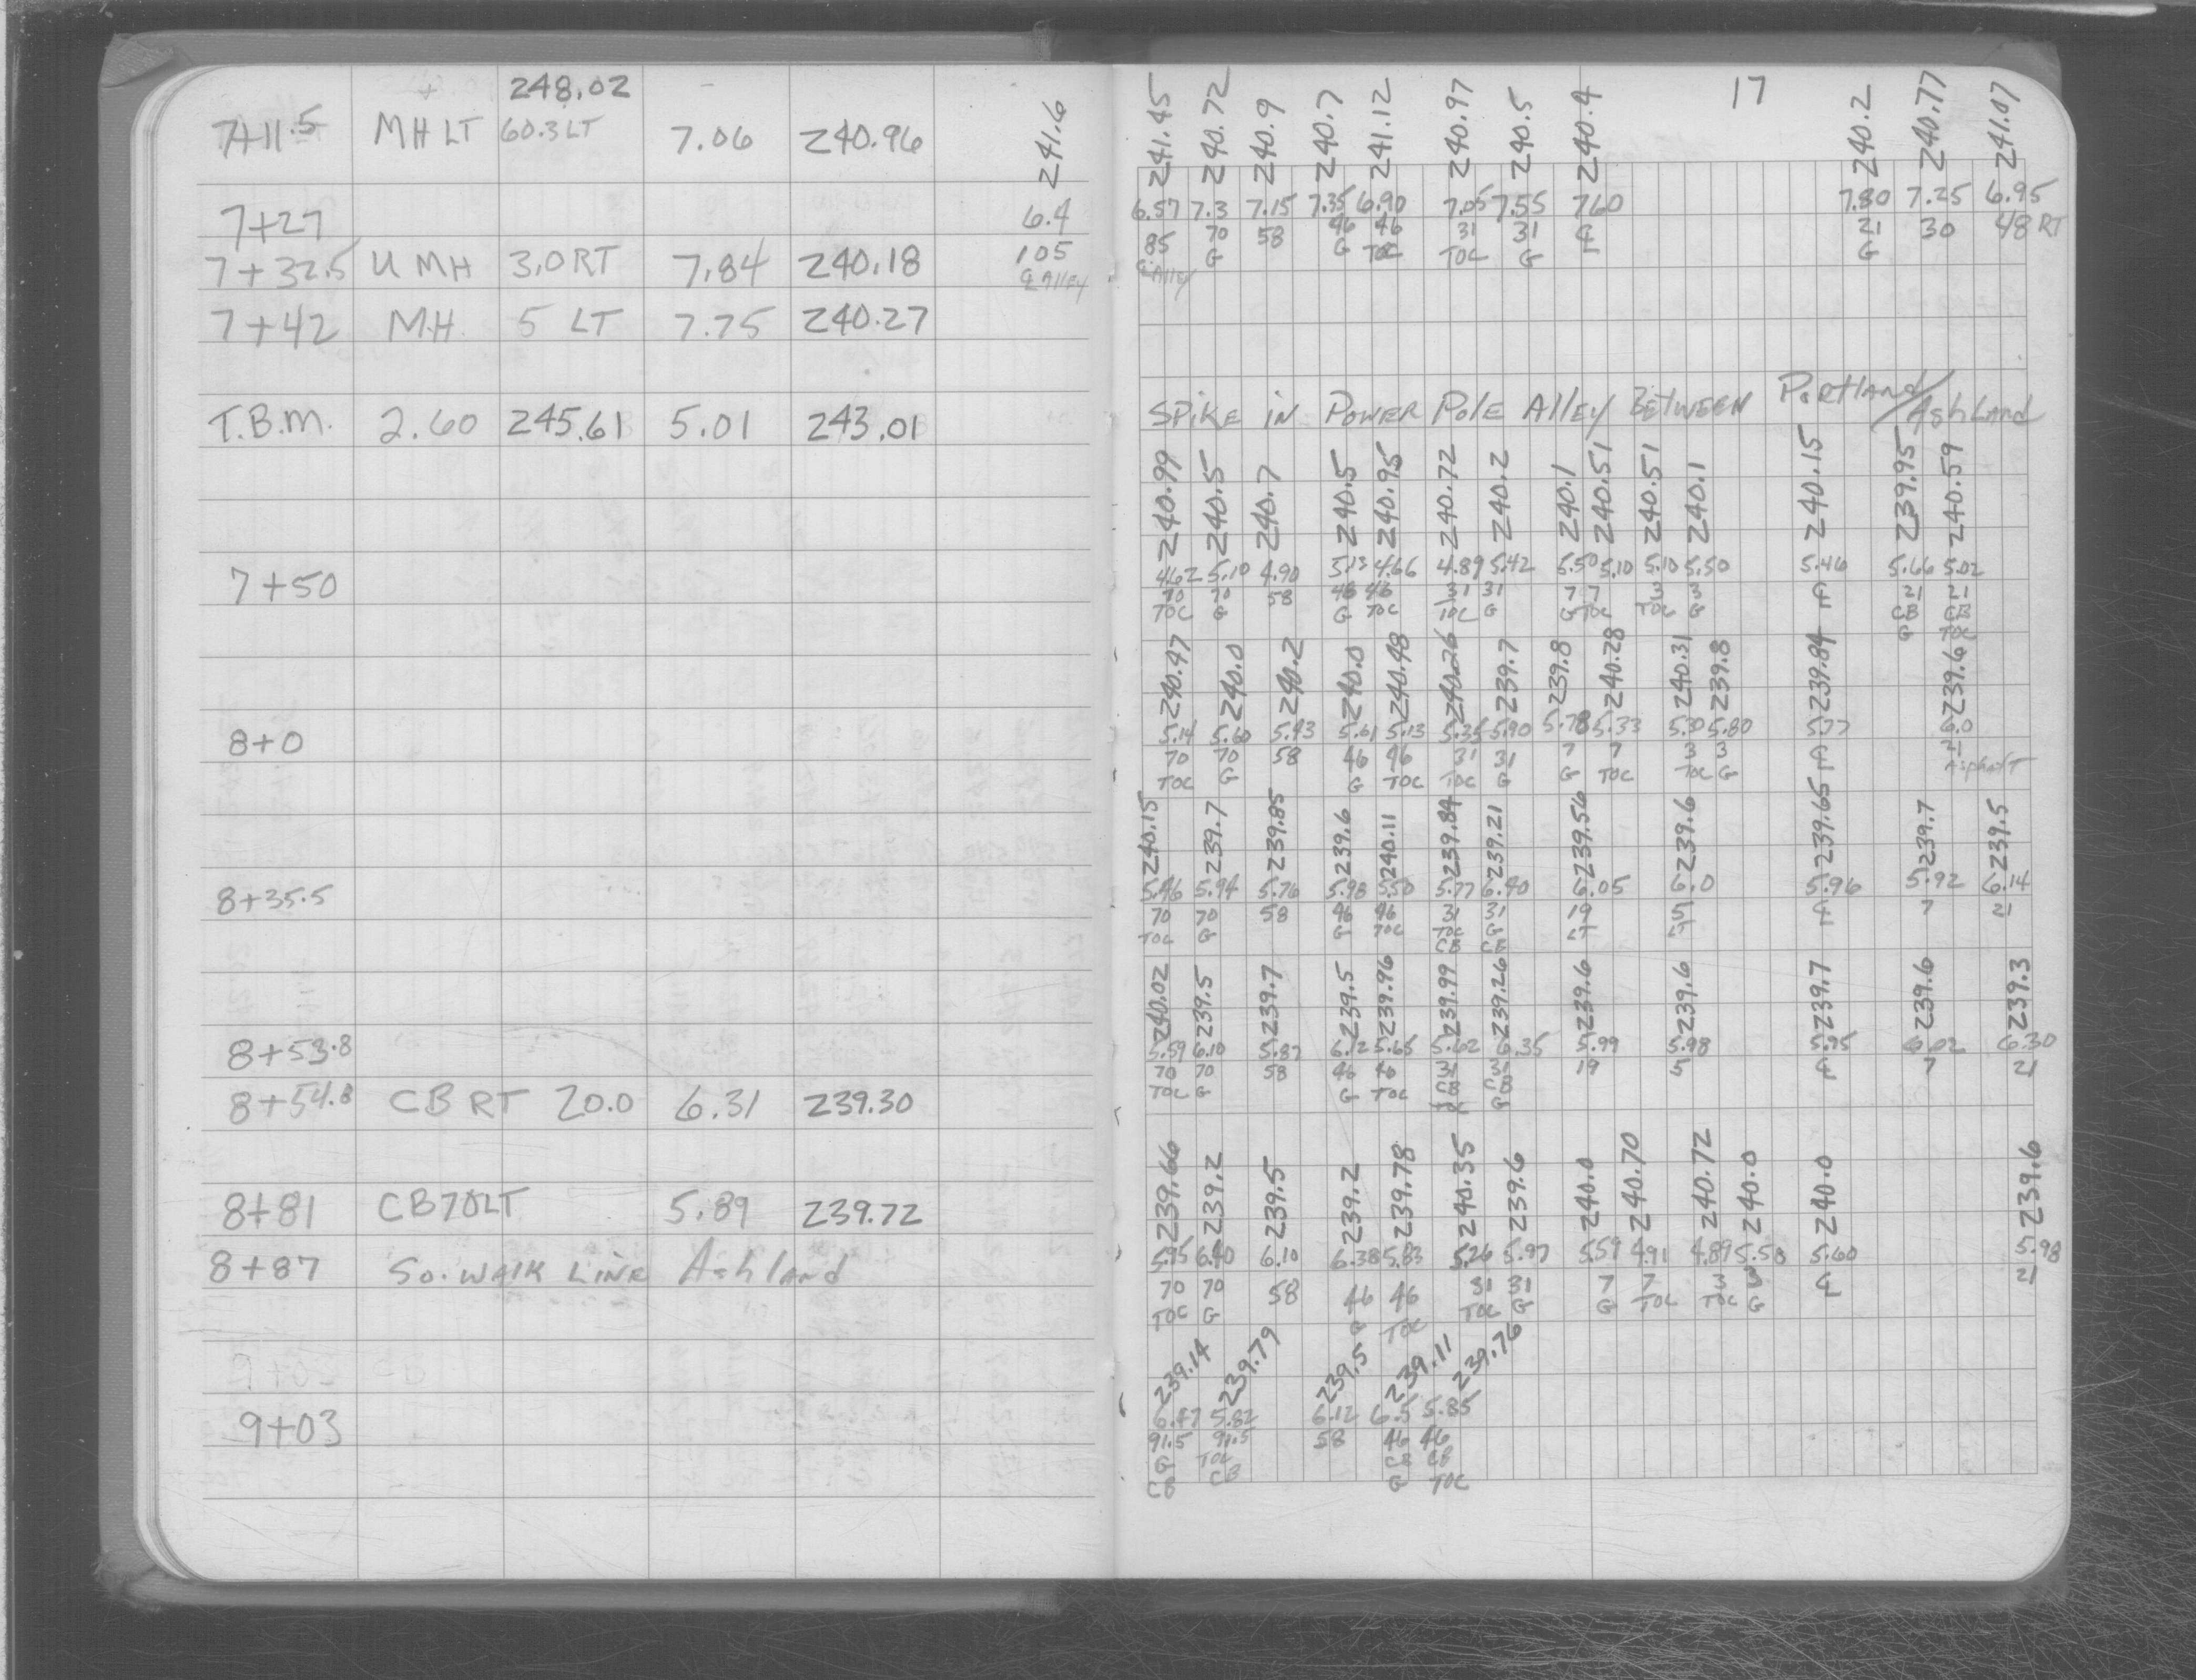 248.02
7+11.5 MH LT 60.3 LT 7.06 240.96
7+27
7+32.5 U MH 3.0 RT 7.84 240.18
7+42 MH 5 LT 7.75 240.27
T.B.M. 2.60 245.61 5.01 243.01
7+50
8+0
8+35.5
8+53.8
8+54.8 CB RT 20.0 6.31 239.30
8+81 CB 70 LT 5.89 239.72
8+87 So. WALK LINE Ashland
9+03
17
241.6 241.45 240.72 240.9 240.7 241.12 240.97 240.5 240.4 240.2 240.77 241.07
6.4 6.57 7.3 7.15 7.35 6.90 7.05 7.55 7.60 7.80 7.25 6.95
105 85 70 58 46 46 31 31 ℄ 21 30 48 RT
℄ Alley ℄ Alley G G TOC TOC G G
SPIKE IN POWER POLE ALLEY BETWEEN PORTLAND/AshLAND
240.99 240.5 240.7 240.5 240.95 240.72 240.2 240.1 240.51 240.51 240.1 240.15 239.95 240.59
4.62 5.10 4.90 5.13 4.66 4.89 5.42 5.50 5.10 5.10 5.50 5.46 5.66 5.02
70 70 58 46 46 31 31 7 7 3 3 ℄ 21 21
TOC G G TOC TOC G G TOC TOC G CB CB
G TOC
240.47 240.0 240.2 240.0 240.48 240.26 239.7 239.8 240.28 240.31 239.8 239.84 239.6
5.14 5.60 5.43 5.61 5.13 5.35 5.90 5.78 5.33 5.30 5.80 5.77 6.0
70 70 58 46 46 31 31 7 7 3 3 ℄ 21
TOC G G TOC TOC G G TOC TOC G Asphalt
240.15 239.7 239.85 239.6 240.11 239.84 239.21 239.56 239.6 239.65 239.7 239.5
5.46 5.94 5.76 5.98 5.50 5.77 6.40 6.05 6.0 5.96 5.92 6.14
70 70 58 46 46 31 31 19 5 ℄ 7 21
TOC G G TOC TOC G LT LT
CB CB
240.02 239.5 239.7 239.5 239.96 239.99 239.26 239.6 239.6 239.7 239.6 239.3
5.59 6.10 5.87 6.12 5.65 5.62 6.35 5.99 5.98 5.95 6.02 6.30
70 70 58 46 46 31 31 19 5 ℄ 7 21
TOC G G TOC CB CB
TOC G
239.66 239.2 239.5 239.2 239.78 240.35 239.6 240.0 240.70 240.72 240.0 240.0 239.6
5.95 6.40 6.10 6.38 5.83 5.26 5.97 5.59 4.91 4.89 5.58 5.60 5.98
70 70 58 46 46 31 31 7 7 3 3 ℄ 21
TOC G G TOC TOC G G TOC TOC G
239.14 239.79 239.5 239.11 239.76
6.47 5.82 6.12 6.5 5.85
91.5 91.5 58 46 46
G TOC CB CB
CB CB G TOC